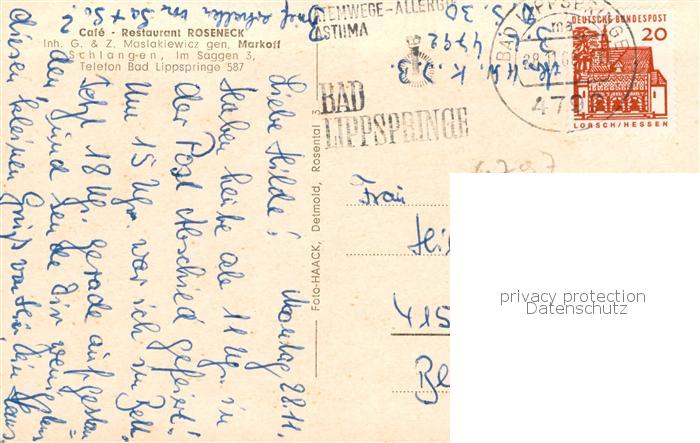 Café - Restaurant ROSENECK
Inh. G. & Z. Maslakiewicz gen. Markoff
Schlangen, Im Saggen 3,
Telefon Bad Lippspringe 587
Foto-HAACK, Detmold, Rosental 3
ATEMWEGE-ALLERGIE
ASTHMA
BAD
LIPPSPRINGE
BAD LIPPSPRINGE
479
DEUTSCHE BUNDESPOST
20
LORSCH/HESSEN
Montag 28.11.
Liebe Hilde!
Haben heute ab 11 Uhr in
der Post Abschied gefeiert.
Um 15 Uhr war ich im Bett.
Jetzt 18 Uhr gerade aufgestan
den, und sende Dir wenigstens
diesen kleinen Gruß von
Brief erhalten von Sa + So.?
4792
Frau
415
privacy protection
Datenschutz